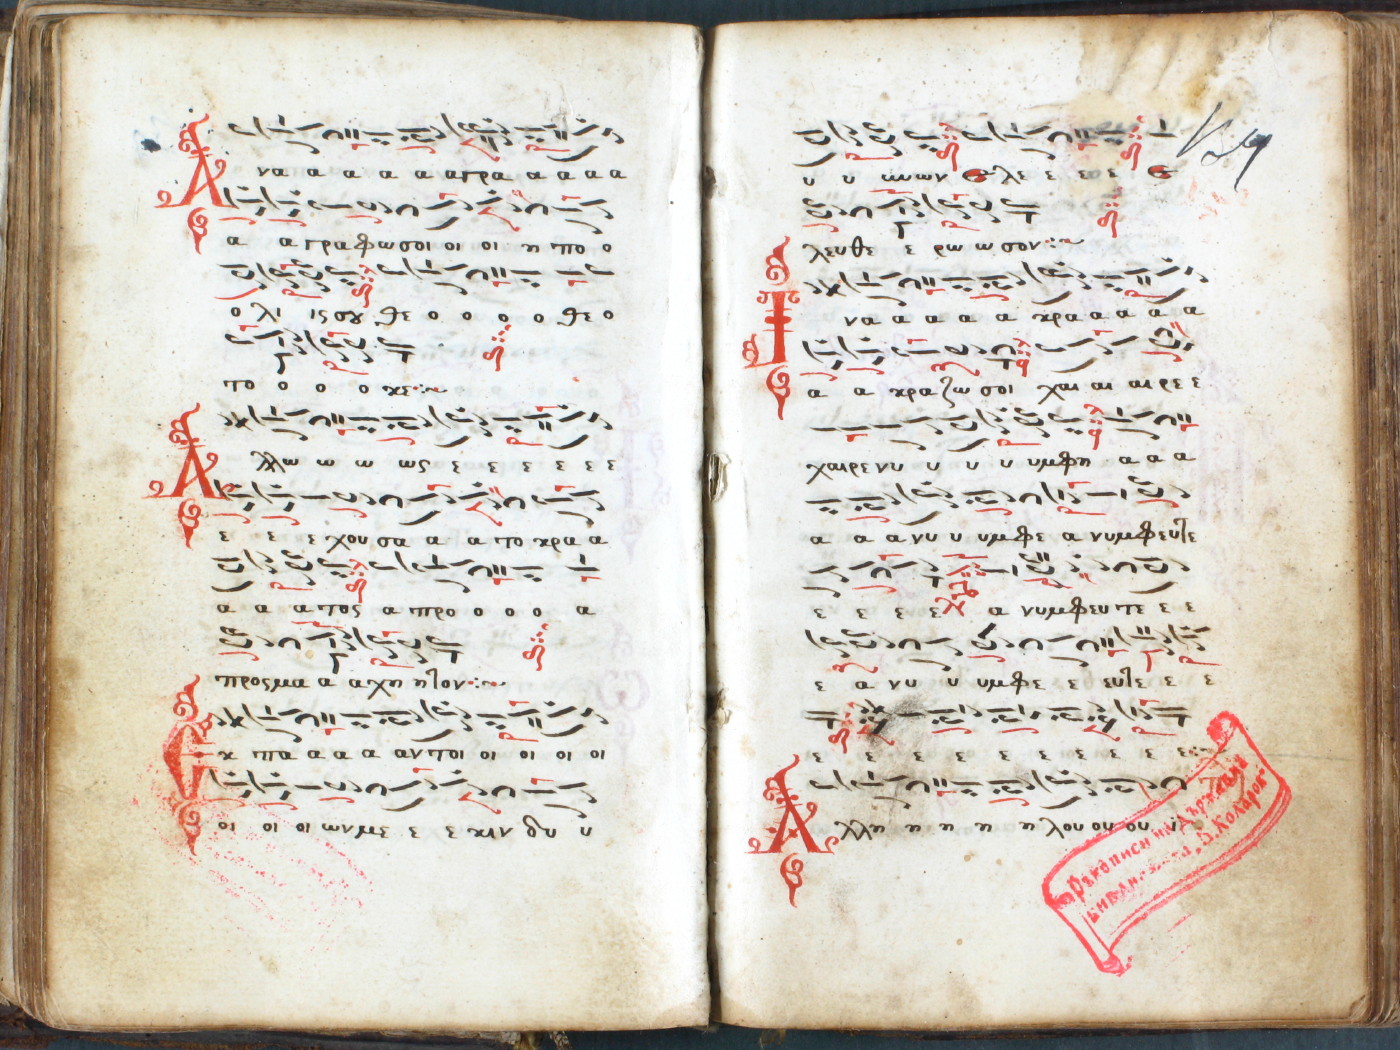 Α
να α α α α αγρα α α α α
α αγραφω σοι οι οι η πο ο
ο λι ις σου θε ο ο ο ο θε ο
το ο ο ο κε
Α
λλω ω ω ως ε ε ε ε ε ε
ε ε ε χου σα α α το κρα α
α α α τος α προ ο ο ο α
προς μα α α χη η τον
Ε
κ πα α α α αν τοι οι οι οι οι οι
οι οι οι ων με ε ε κιν δυ υ
υ υ ων ε λε ε ε ε ε
λευθε ε ρω ω σον
Ι
να α α α α κρα α α α α
α α κραζω σοι χαι αι αι ρε ε
χαιρε νυ υ υ υ υμφη α α α
α α α νυ υ υμφε α νυμφευτε
ε ε ε ε ε α νυμφευ τε ε ε
ε α νυ υ υμφε ε ευτε ε ε
ε ε ε ε ε ε ε ε ε ε
Α
λλη η η η η λου ου ου
Ръкописи на Държавна
библиотека "В. Коларов"